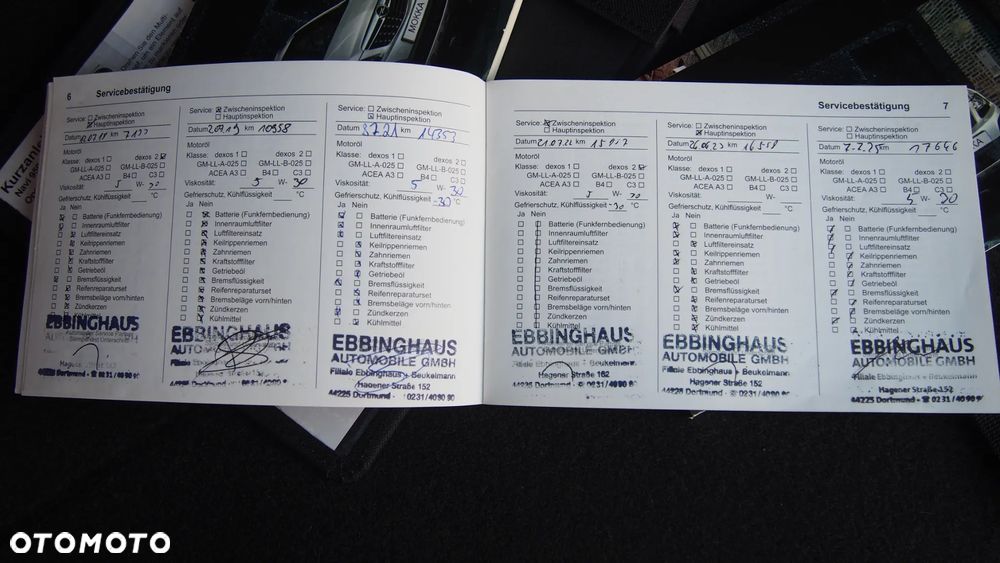 MOKKA
Kurzanleitung
6 Servicebestätigung
Service: ☐ Zwischeninspektion
☒ Hauptinspektion
Datum km
Motoröl
Klasse: dexos 1 ☐ dexos 2 ☒
GM-LL-A-025 ☐ GM-LL-B-025 ☐
ACEA A3 ☐ B4 ☐ C3 ☐
Viskosität: 5 W- 30
Gefrierschutz, Kühlflüssigkeit °C
Ja Nein
Batterie (Funkfernbedienung)
Innenraumluftfilter
Luftfiltereinsatz
Keilrippenriemen
Zahnriemen
Kraftstofffilter
Getriebeöl
Bremsflüssigkeit
Reifenreparaturset
Bremsbeläge vorn/hinten
Zündkerzen
EBBINGHAUS
Dortmund - ☎ 0231/40 90 9
Service: ☒ Zwischeninspektion
☐ Hauptinspektion
Datum km 10958
Motoröl
Klasse: dexos 1 ☐ dexos 2 ☐
GM-LL-A-025 ☐ GM-LL-B-025 ☐
ACEA A3 ☐ B4 ☐ C3 ☐
Viskosität: 5 W- 30
Gefrierschutz, Kühlflüssigkeit °C
Ja Nein
Batterie (Funkfernbedienung)
Innenraumluftfilter
Luftfiltereinsatz
Keilrippenriemen
Zahnriemen
Kraftstofffilter
Getriebeöl
Bremsflüssigkeit
Reifenreparaturset
Bremsbeläge vorn/hinten
Zündkerzen
Kühlmittel
EBBINGHAUS
AUTOMOBILE GMBH
44225 Dortmund - ☎ 0231/40 90 90
Service: ☐ Zwischeninspektion
☒ Hauptinspektion
Datum km 14353
Motoröl
Klasse: dexos 1 ☐ dexos 2 ☐
GM-LL-A-025 ☐ GM-LL-B-025 ☐
ACEA A3 ☐ B4 ☐ C3 ☐
Viskosität: 5 W- 30
Gefrierschutz, Kühlflüssigkeit -30 °C
Ja Nein
Batterie (Funkfernbedienung)
Innenraumluftfilter
Luftfiltereinsatz
Keilrippenriemen
Zahnriemen
Kraftstofffilter
Getriebeöl
Bremsflüssigkeit
Reifenreparaturset
Bremsbeläge vorn/hinten
Zündkerzen
Kühlmittel
EBBINGHAUS
AUTOMOBILE GMBH
Filiale Ebbinghaus - Beukelmann
Hagener Straße 152
44225 Dortmund - 0231/40 90 90
Servicebestätigung 7
Service: ☒ Zwischeninspektion
☐ Hauptinspektion
Datum 21.07.22 km
Motoröl
Klasse: dexos 1 ☐ dexos 2 ☒
GM-LL-A-025 ☐ GM-LL-B-025 ☐
ACEA A3 ☐ B4 ☐ C3 ☐
Viskosität: 5 W- 30
Gefrierschutz, Kühlflüssigkeit -30 °C
Ja Nein
Batterie (Funkfernbedienung)
Innenraumluftfilter
Luftfiltereinsatz
Keilrippenriemen
Zahnriemen
Kraftstofffilter
Getriebeöl
Bremsflüssigkeit
Reifenreparaturset
Bremsbeläge vorn/hinten
Zündkerzen
Kühlmittel
EBBINGHAUS
AUTOMOBILE GMBH
Filiale Ebbinghaus - Beukelmann
Hagener Straße 152
44225 Dortmund - ☎ 0231/40 90 90
Service: ☐ Zwischeninspektion
☒ Hauptinspektion
Datum km 16558
Motoröl
Klasse: dexos 1 ☐ dexos 2 ☐
GM-LL-A-025 ☐ GM-LL-B-025 ☐
ACEA A3 ☐ B4 ☐ C3 ☐
Viskosität: W-
Gefrierschutz, Kühlflüssigkeit °C
Ja Nein
Batterie (Funkfernbedienung)
Innenraumluftfilter
Luftfiltereinsatz
Keilrippenriemen
Zahnriemen
Kraftstofffilter
Getriebeöl
Bremsflüssigkeit
Reifenreparaturset
Bremsbeläge vorn/hinten
Zündkerzen
Kühlmittel
EBBINGHAUS
AUTOMOBILE GMBH
Filiale Ebbinghaus - Beukelmann
Hagener Straße 152
44225 Dortmund - ☎ 0231/40 90 90
Service: ☒ Zwischeninspektion
☐ Hauptinspektion
Datum 7.2.25 km 17646
Motoröl
Klasse: dexos 1 ☐ dexos 2 ☐
GM-LL-A-025 ☐ GM-LL-B-025 ☐
ACEA A3 ☐ B4 ☐ C3 ☐
Viskosität: 5 W- 30
Gefrierschutz, Kühlflüssigkeit °C
Ja Nein
Batterie (Funkfernbedienung)
Innenraumluftfilter
Luftfiltereinsatz
Keilrippenriemen
Zahnriemen
Kraftstofffilter
Getriebeöl
Bremsflüssigkeit
Reifenreparaturset
Bremsbeläge vorn/hinten
Zündkerzen
Kühlmittel
EBBINGHAUS
AUTOMOBILE GMBH
Filiale Ebbinghaus - Beukelmann
Hagener Straße 152
44225 Dortmund - ☎ 0231/40 90 90
OTOMOTO